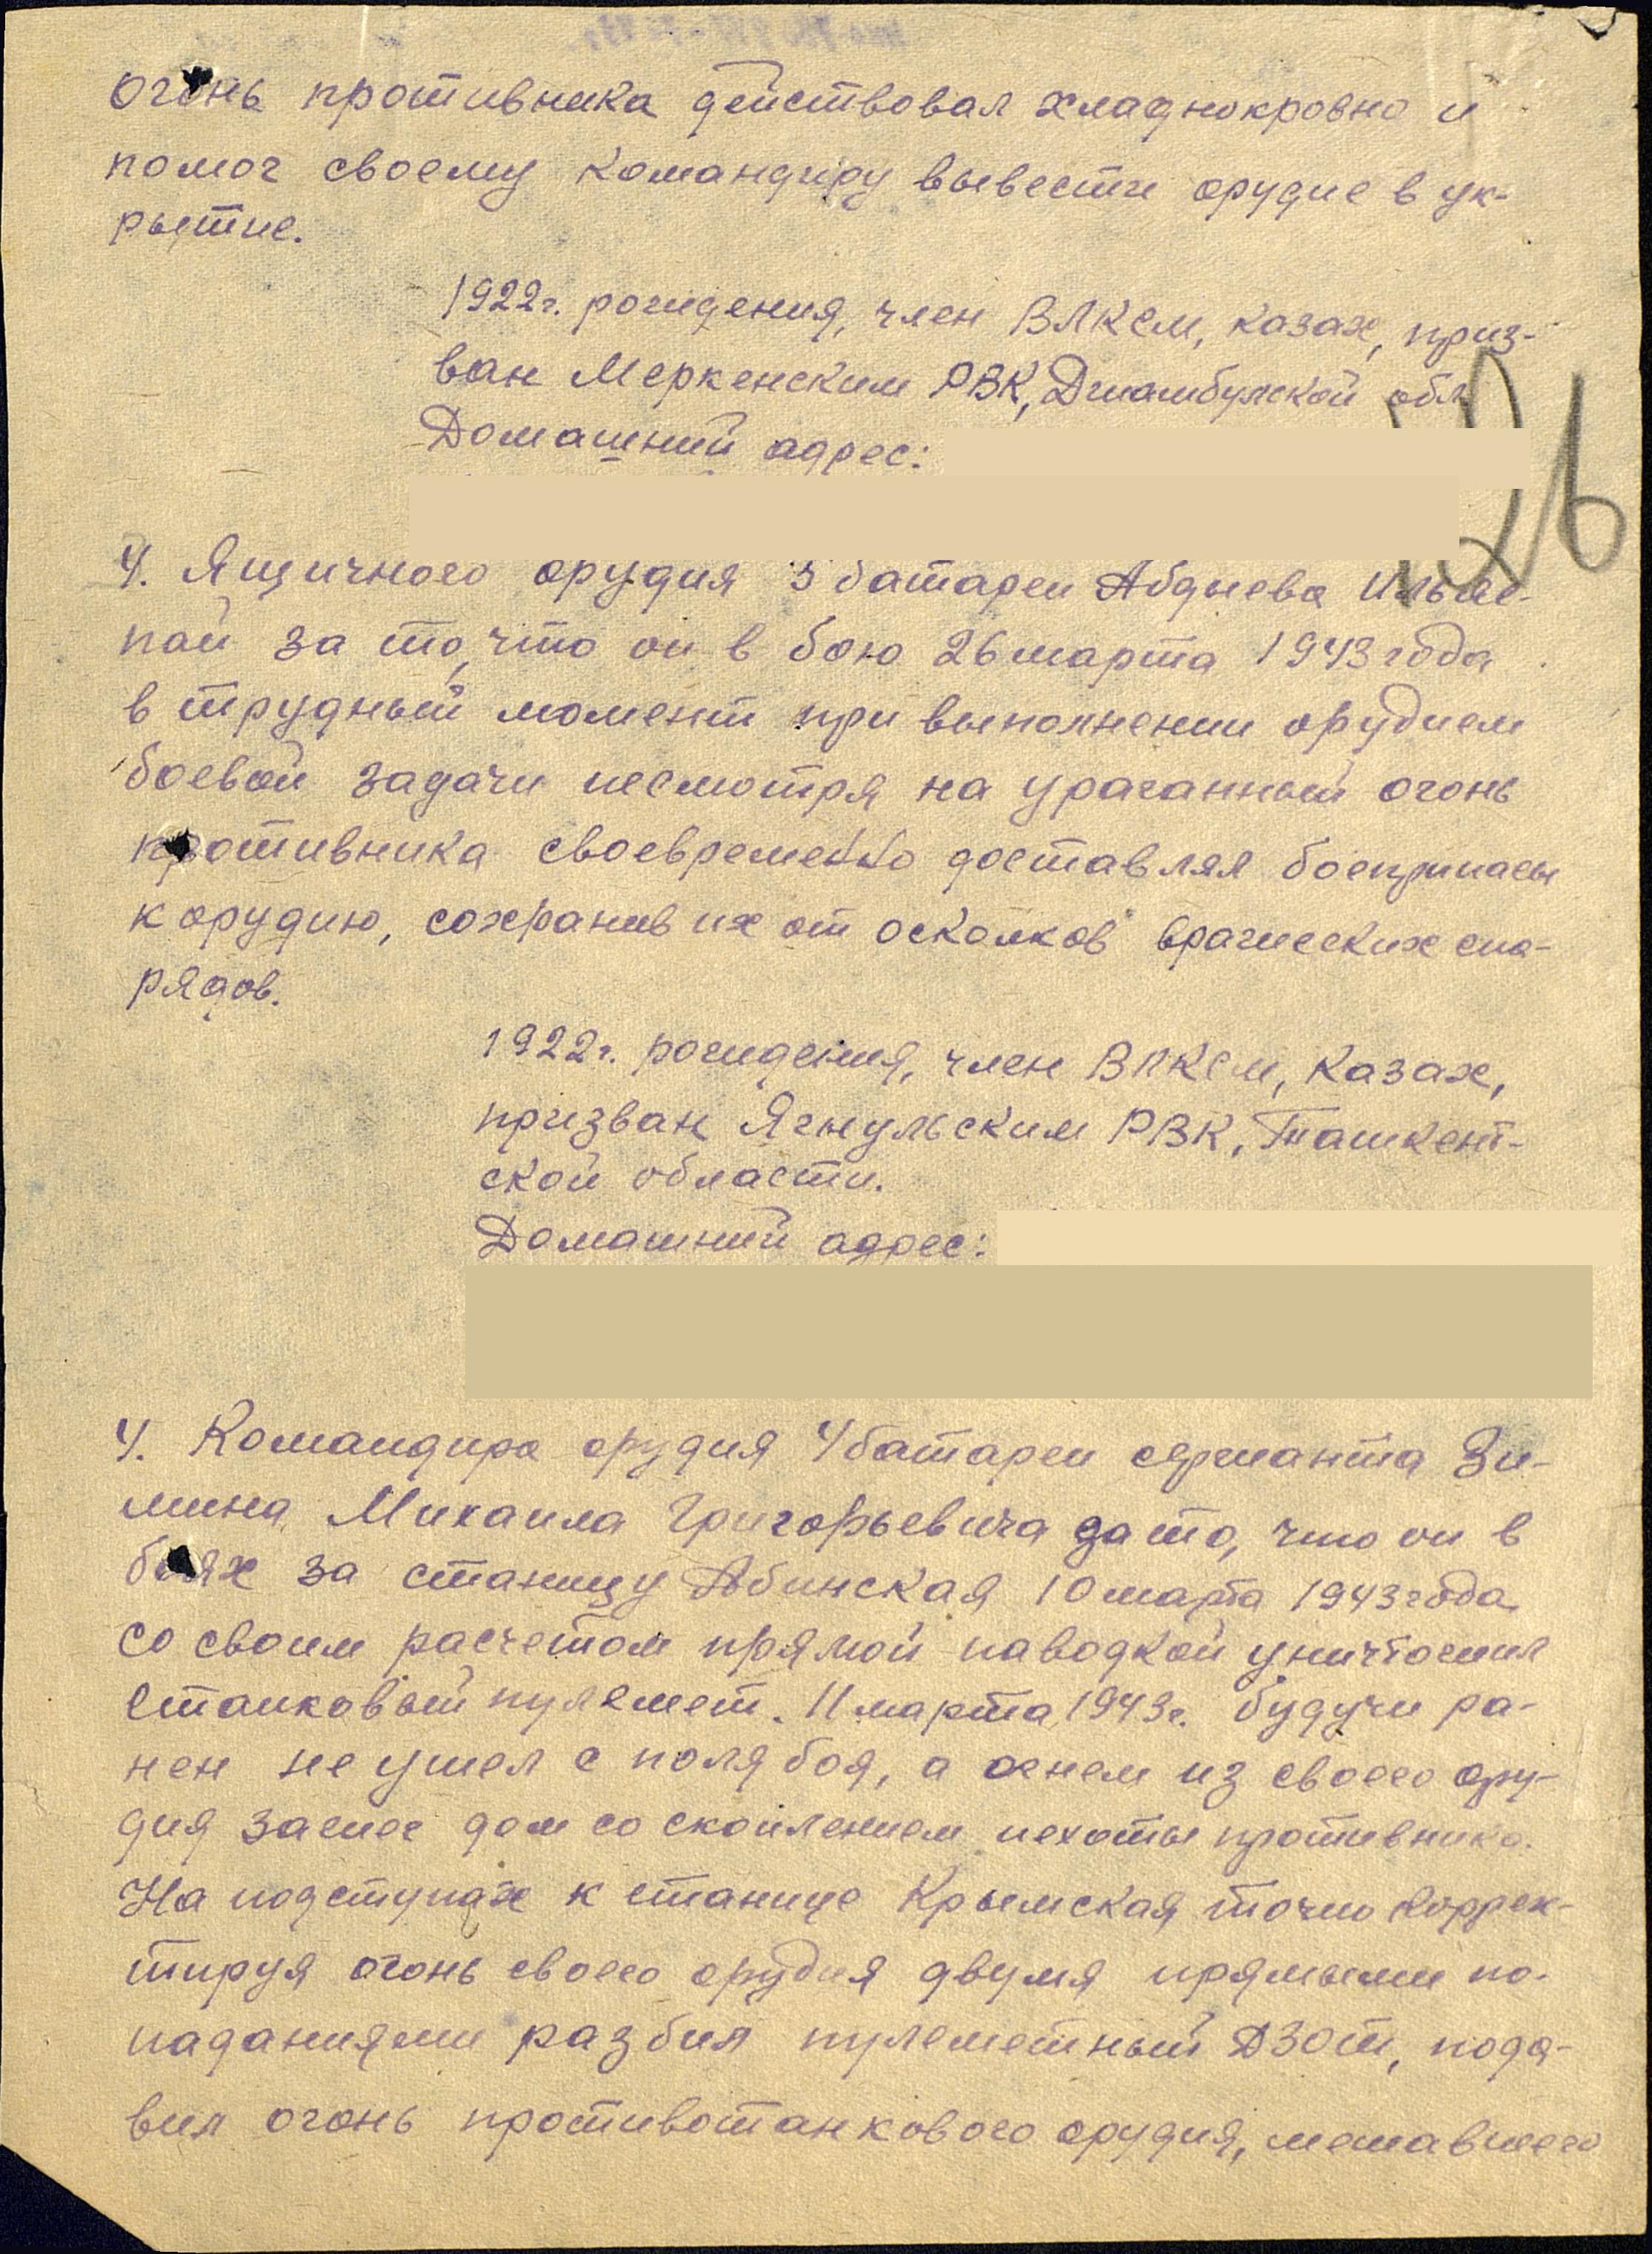 огонь противника действовал хладнокровно и
помог своему командиру вывести орудие в ук-
рытие.
1922г. рождения, член ВЛКСМ, казах, приз-
ван Меркенским РВК, Джамбулской обл.
Домашний адрес:
4. Ящичного орудия 3 батареи Абдыева
пай за то, что он в бою 26 марта 1943 года
в трудный момент при выполнении орудием
боевой задачи несмотря на ураганный огонь
противника своевременно доставлял боеприпасы
к орудию, сохранив их от осколков вражеских сна-
рядов.
1922г. рождения, член ВЛКСМ, казах,
призван РВК, Ташкент-
ской области.
Домашний адрес:
4. Командира орудия 4 батареи сержанта Зи-
мина Михаила Григорьевича за то, что он в
боях за станицу Абинская 10 марта 1943 года
со своим расчетом прямой наводкой уничтожил
станковый пулемет. 11 марта 1943г. будучи ра-
нен не ушел с поля боя, а огнем из своего ору-
дия зажег дом со скоплением пехоты противника.
На подступах к станице Крымская точно коррек-
тируя огонь своего орудия двумя прямыми по-
паданиями разбил пулеметный ДЗОТ, пода-
вил огонь противотанкового орудия, мешавшего